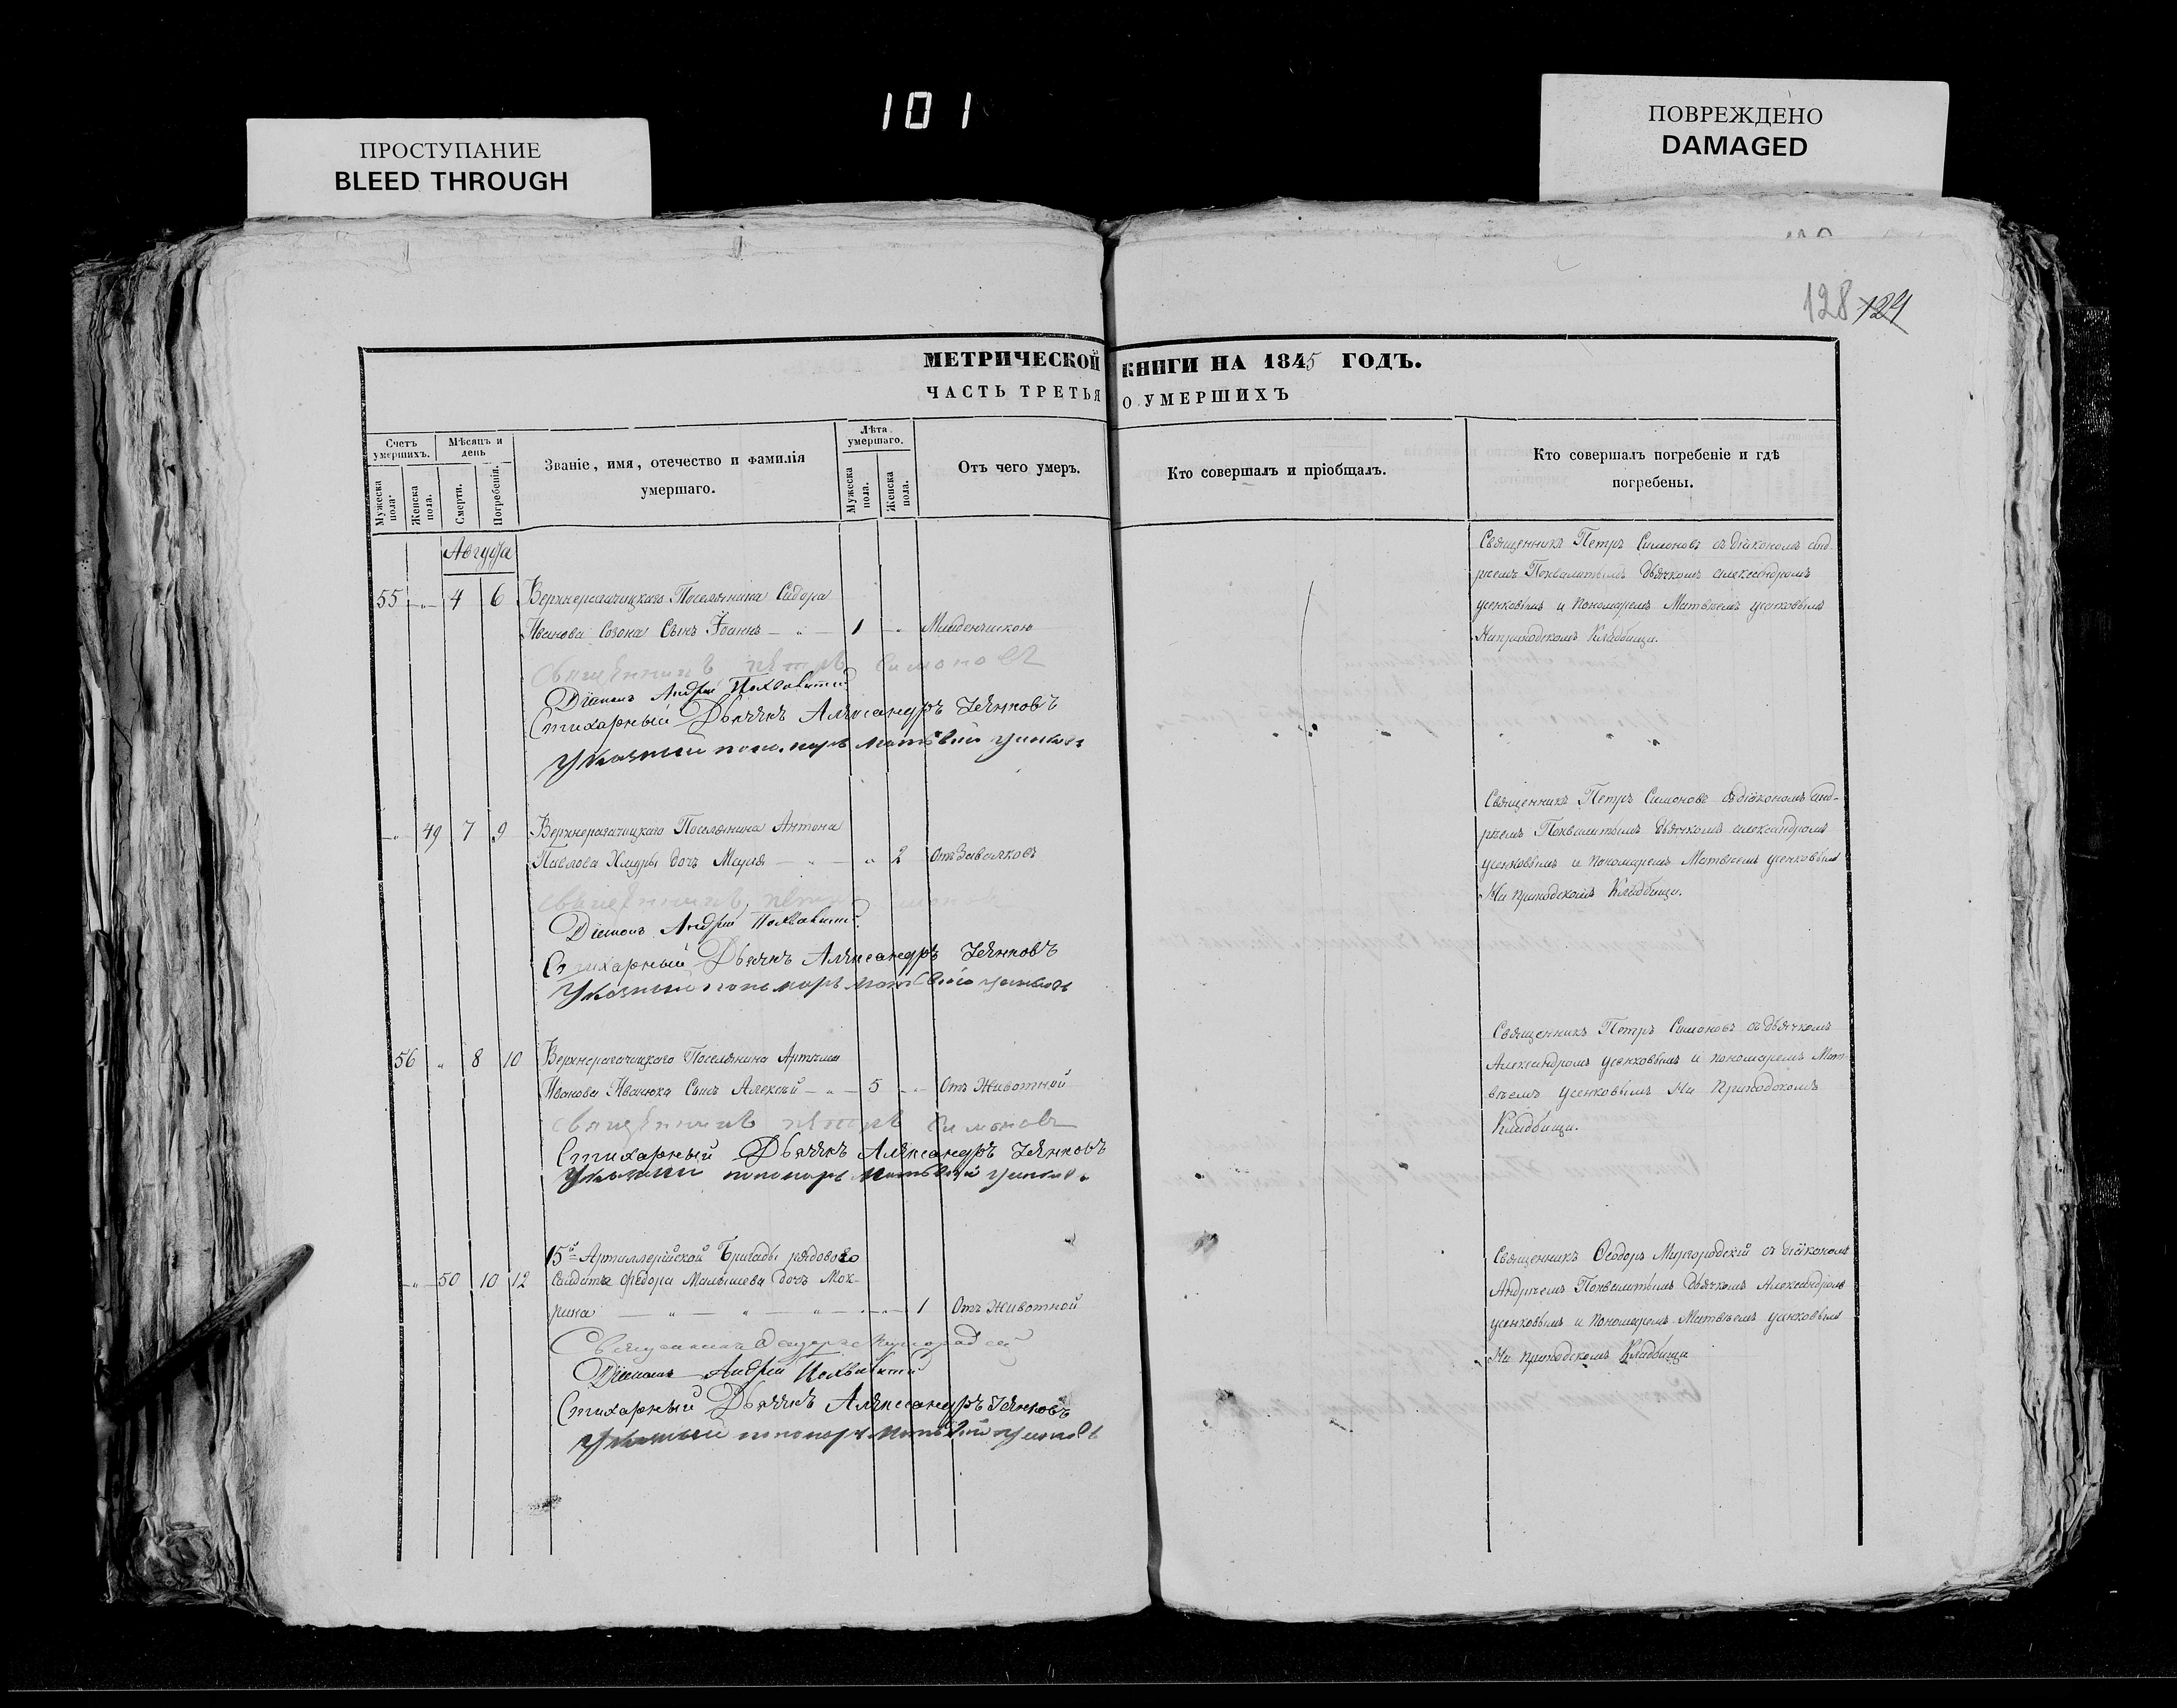 101
ПРОСТУПАНИЕ
BLEED THROUGH
ПОВРЕЖДЕНО
DAMAGED
128 124
МЕТРИЧЕСКОЙ КНИГИ НА 1845 ГОДЪ.
ЧАСТЬ ТРЕТЬЯ О УМЕРШИХЪ
Счетъ умершихъ.
Мужеска пола.
Женска пола.
Мѣсяцъ и день
Смерти.
Погребенія.
Званіе, имя, отечество и фамилія
умершаго.
Лѣта умершаго.
Мужеска пола.
Женска пола.
Отъ чего умеръ.
Кто совершалъ и пріобщалъ.
Кто совершалъ погребеніе и гдѣ
погребены.
Августа
55 " 4 6 Верхнерогачицкаго Поселянина Сидора
Иванова Созона Сынъ Іоаннъ — " — 1 " Младенческою
Священникъ Петръ Симоновъ
Діаконъ Андрей Похвалитый
Стихарный Дьячекъ Александръ Усенковъ
Указный пономарь Матвѣй Усенковъ
Священникъ Петръ Симоновъ съ діакономъ Анд-
реемъ Похвалитымъ дьячкомъ Александромъ
Усенковымъ и пономаремъ Матвѣемъ Усенковымъ
На приходскомъ Кладбищи.
" 49 7 9 Верхнерогачицкаго Поселянина Антона
Павлова Хмары дочь Марія — " — " 2 Отъ Заваловъ
Священникъ Петръ Симоновъ
Діаконъ Андрей Похвалитый
Стихарный Дьячекъ Александръ Усенковъ
Указный пономарь Матвѣй Усенковъ
Священникъ Петръ Симоновъ съ діакономъ Анд-
реемъ Похвалитымъ дьячкомъ Александромъ
Усенковымъ и пономаремъ Матвѣемъ Усенковымъ
На приходскомъ Кладбищи.
56 " 8 10 Верхнерогачицкаго Поселянина Артема
Иванова Иванюка Сынъ Алексѣй — " — 5 " Отъ Животной
Священникъ Петръ Симоновъ
Стихарный Дьячекъ Александръ Усенковъ
Указный пономарь Матвѣй Усенковъ
Священникъ Петръ Симоновъ съ дьячкомъ
Александромъ Усенковымъ и пономаремъ Мат-
вѣемъ Усенковымъ На Приходскомъ
Кладбищи.
" 50 10 12 15й Артиллерійской Бригады рядоваго
Солдата Федора Малышева дочь Мок-
рина — " — " — " — " 1 Отъ Животной
Священникъ Ѳеодоръ Миргородскій
Діаконъ Андрей Похвалитый
Стихарный Дьячекъ Александръ Усенковъ
Указный пономарь Матвѣй Усенковъ
Священникъ Ѳеодоръ Миргородскій съ діакономъ
Андреемъ Похвалитымъ дьячкомъ Александромъ
Усенковымъ и пономаремъ Матвѣемъ Усенковымъ
На приходскомъ Кладбищи